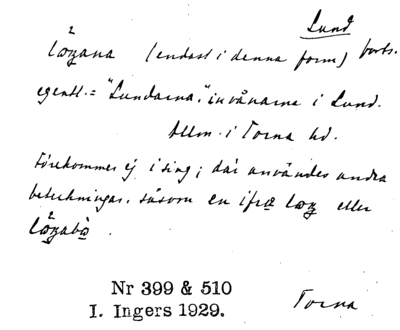 Lund
lözana (endast i denna form) forts.
egentl. = "Lundarna," invånarne i Lund.
Allm. i Torna hd.
Förekommer ej i sing; där användes andra
beteckningar, såsom en ifrå löz eller
lözabo.
Nr 399 & 510
I. Ingers 1929.
Torna